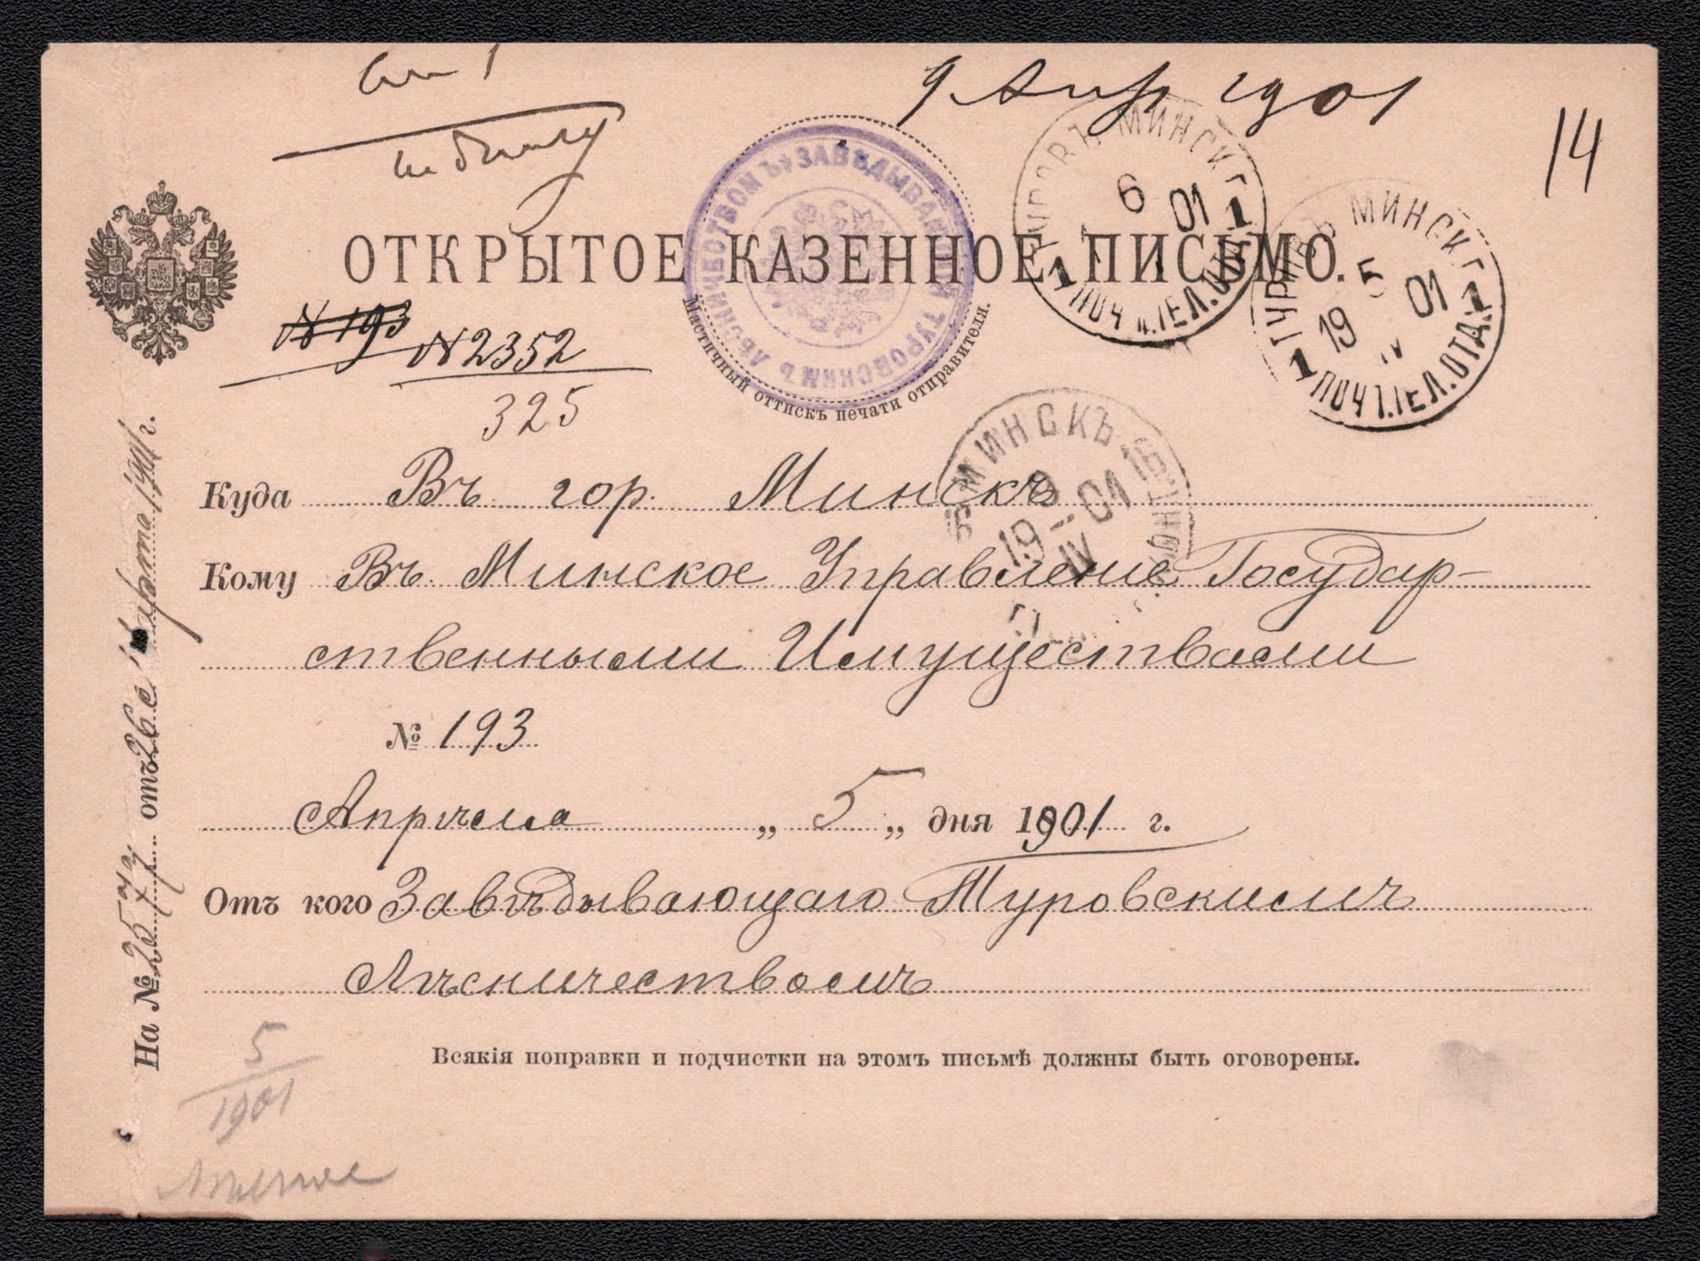 9 Апр 1901
14
ЗАВѢДЫВАЮЩІЙ ТУРОВСКИМЪ ЛѢСНИЧЕСТВОМЪ
ТУРОВЪ МИНСК. Г.
6
01
1 ПОЧ. ТЕЛ. ОТД. 1
ТУРОВЪ МИНСК. Г.
5
19 01
IV
1 ПОЧТ. ТЕЛ. ОТД. 1
ОТКРЫТОЕ КАЗЕННОЕ ПИСЬМО.
Мастичный оттискъ печати отправителя.
№ 193
№ 2352
325
МИНСКЪ
9
19 – 01
IV
Куда Въ гор. Минскъ
Кому Въ Минское Управленіе Государ-
ственными Имуществами
№ 193
Апрѣля „ 5 „ дня 1901 г.
Отъ кого Завѣдывающаго Туровскимъ
Лѣсничествомъ
Всякія поправки и подчистки на этомъ письмѣ должны быть оговорены.
На № 2577 отъ 26 Марта 1901 г.
5
1901